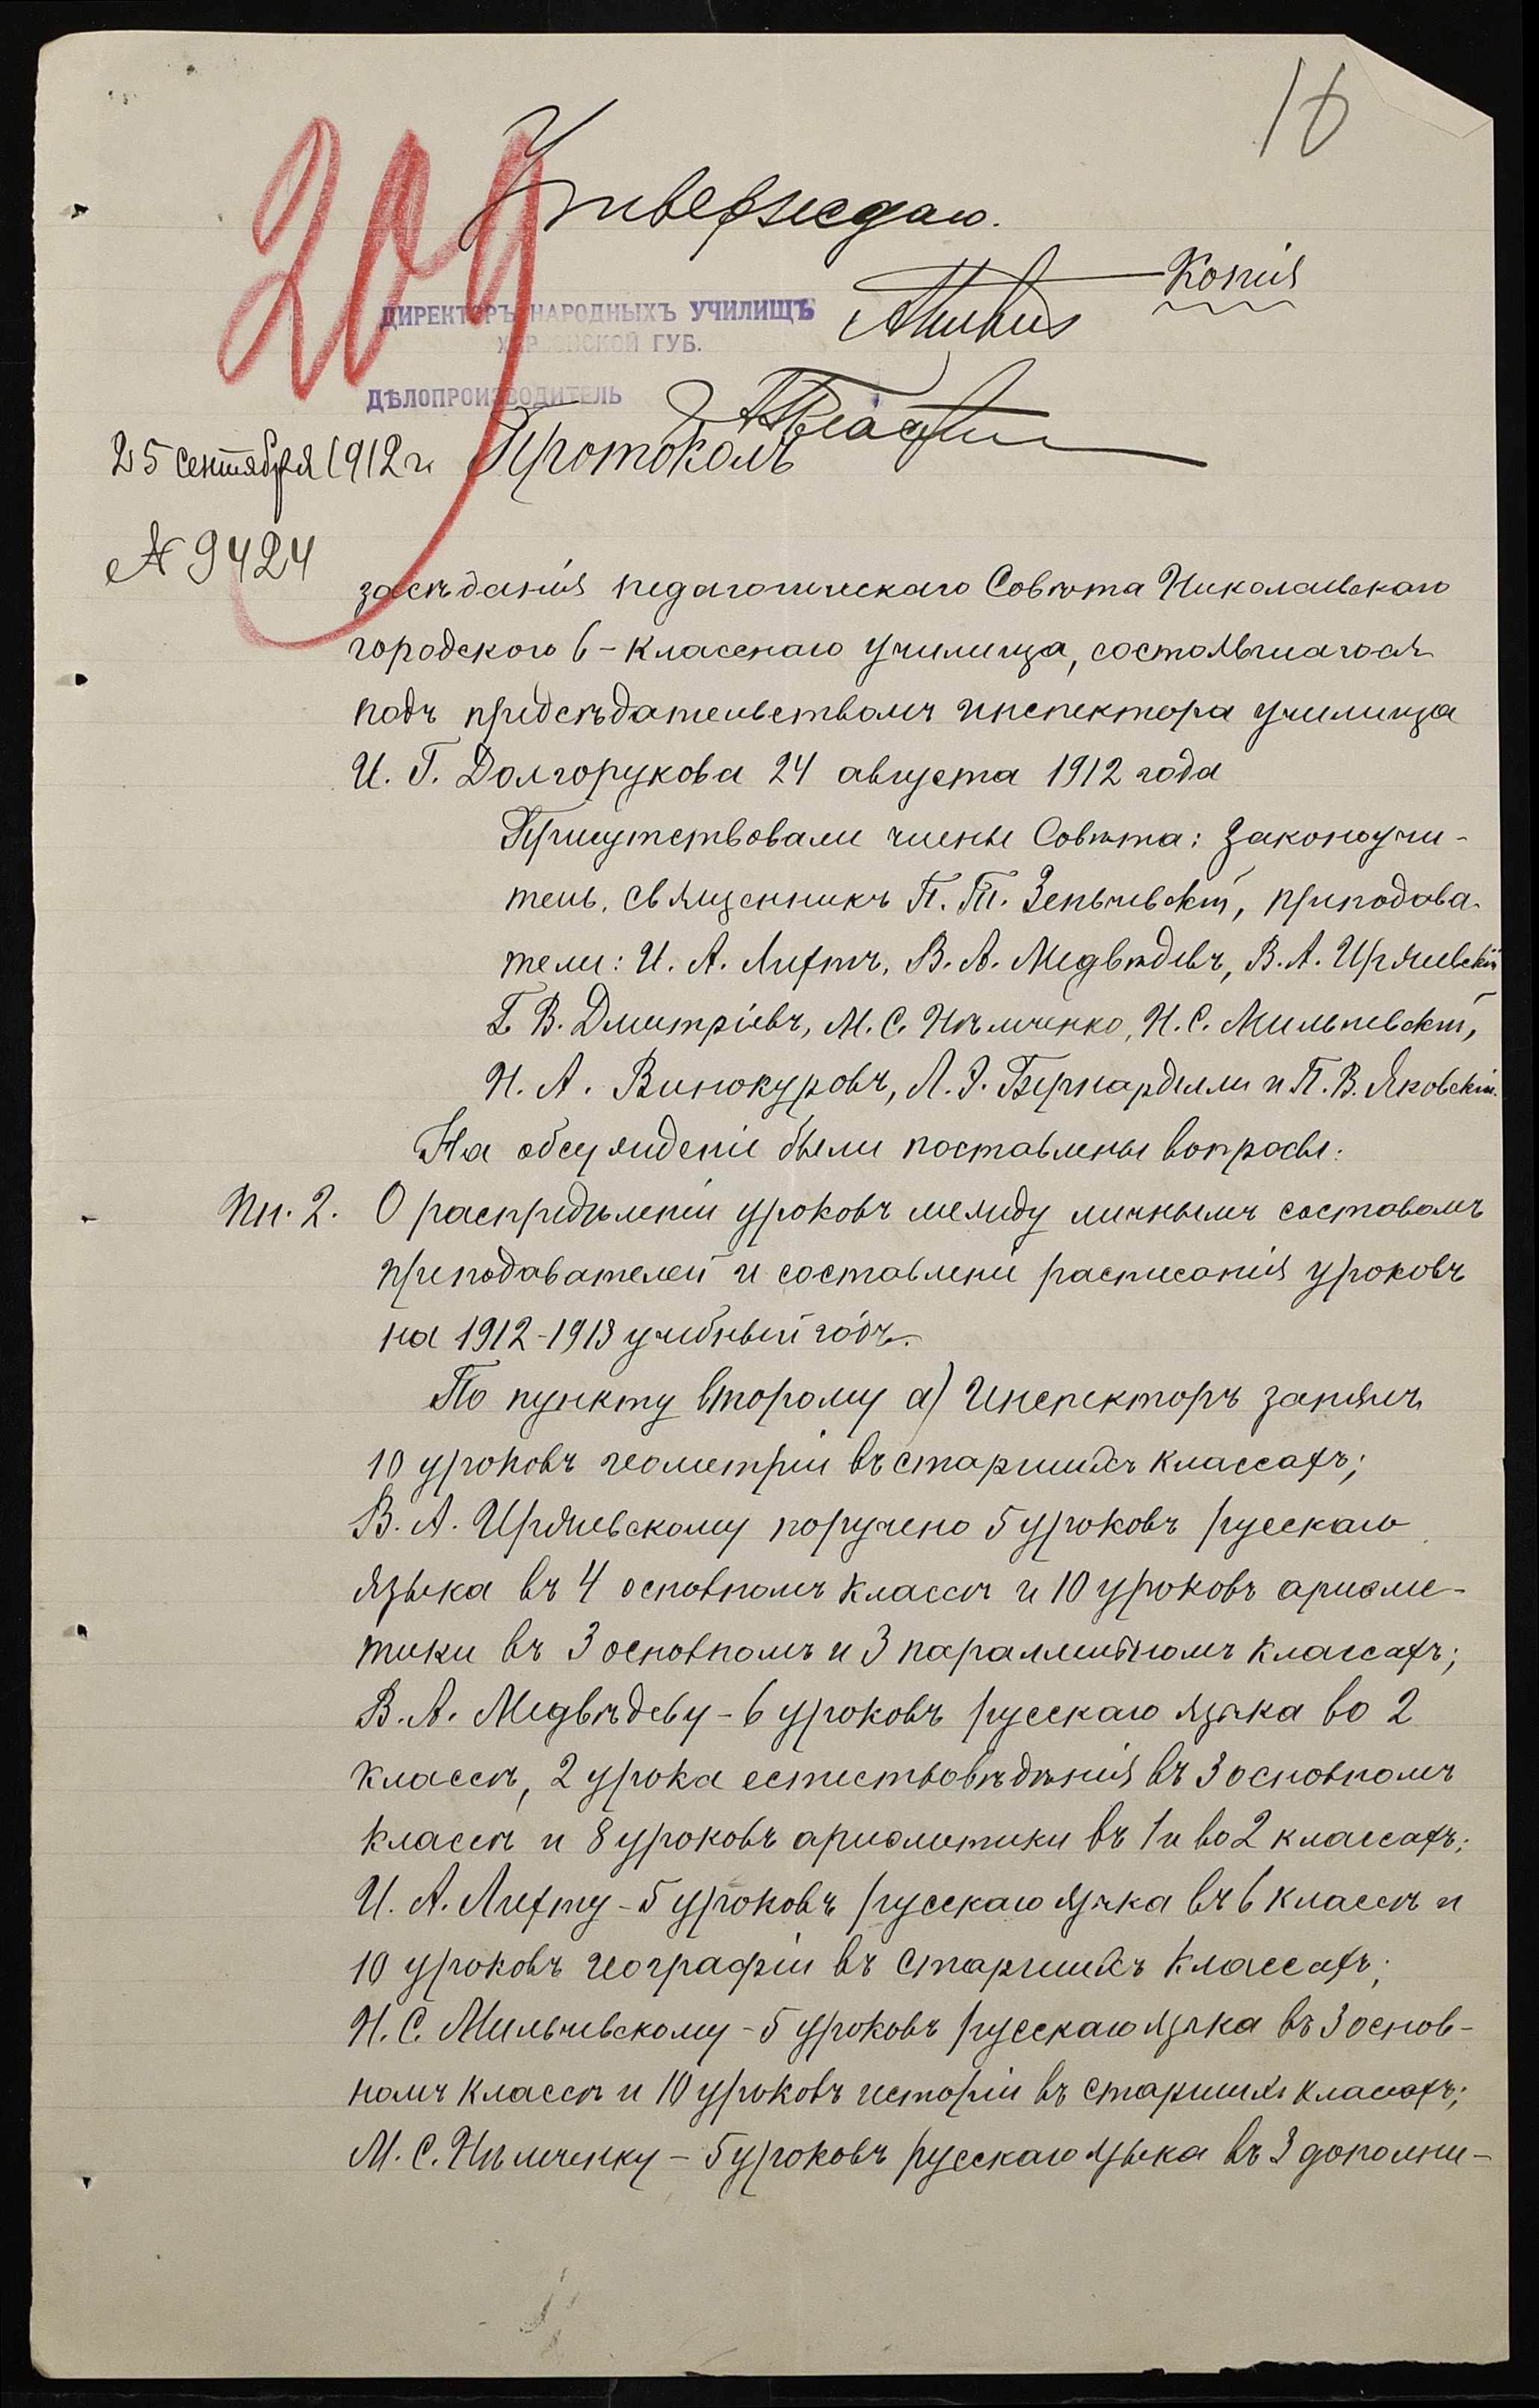 16
209
Утверждаю.
Копія
ДИРЕКТОРЪ НАРОДНЫХЪ УЧИЛИЩЪ
ХЕРСОНСКОЙ ГУБ.
ДѢЛОПРОИЗВОДИТЕЛЬ
25 сентября 1912 г. Протоколъ
№ 9424
засѣданія педагогическаго Совѣта Николаевскаго
городского 6-класснаго училища, состоявшагося
подъ предсѣдательствомъ инспектора училища
И. Г. Долгорукова 24 августа 1912 года
Присутствовали члены Совѣта: Законоучи-
тель, священникъ П. П. Зеньчевскій, преподава-
тели: И. А. Лифтъ, В. А. Медвѣдевъ, В. А. Иржиевскій
Г. В. Дмитріевъ, М. С. Нѣмченко, Н. С. Мильчевскій,
Н. А. Винокуровъ, Л. Э. Бернарделли и П. В. Яковскій.
На обсужденіе были поставлены вопросы:
Пн. 2. О распредѣленіи уроковъ между личнымъ составомъ
преподавателей и составленіе расписанія уроковъ
на 1912-1913 учебный годъ.
По пункту второму а) Инспекторъ занялъ
10 уроковъ геометріи въ старшихъ классахъ;
В. А. Иржиевскому поручено 5 уроковъ русскаго
языка въ 4 основномъ классѣ и 10 уроковъ ариѳме-
тики въ 3 основномъ и 3 параллельномъ классахъ;
В. А. Медвѣдеву - 6 уроковъ русскаго языка во 2
классѣ, 2 урока естествовѣдѣнія въ 3 основномъ
классѣ и 8 уроковъ ариѳметики въ 1 и во 2 классахъ;
И. А. Лифту - 5 уроковъ русскаго языка въ 6 классѣ и
10 уроковъ географіи въ старшихъ классахъ;
Н. С. Мильчевскому - 5 уроковъ русскаго языка въ 3 основ-
номъ классѣ и 10 уроковъ исторіи въ старшихъ классахъ;
М. С. Нѣмченку - 5 уроковъ русскаго языка въ 3 дополни-